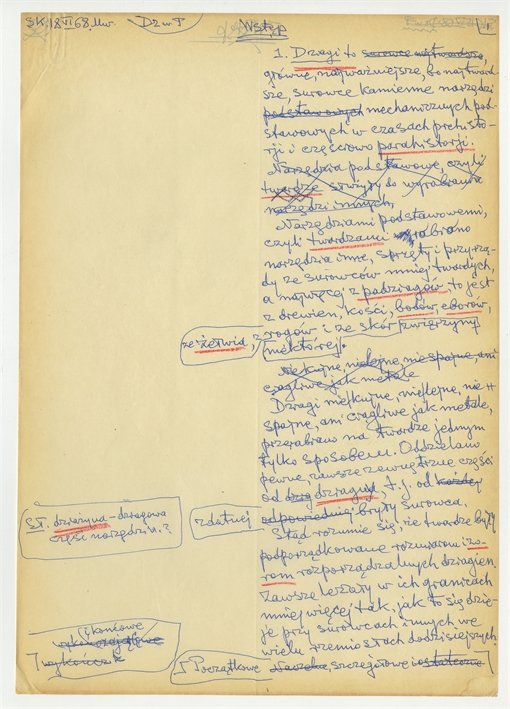 SK 18 VI 68, Uw. Dz w P
Wstęp
1. Dzragi to surowce najtwardsze,
główne, najważniejsze, bo najtward-
sze, surowce kamienne narzędzi
podstawowych mechanicznych pod-
stawowych w czasach prehisto-
rji i częściowo parahistorji.
Narzędzia podstawowe, czyli
twardze służyły do wyrabiania
narzędzi innych,
Narzędziami podstawowemi,
czyli twardzami wyrabiano
narzędzia inne, sprzęty i przyrzą-
dy ze surowców mniej twardych,
a najwięcej z padzragów, to jest
z drewien, kości, bodów, eborów,
rogów i ze skór zwierzyny
ze żerwia, ? niektórej.
Niekujne, nielejne, niespajne, ani
ciągliwe jak metale
Dzragi niekujne, nielejne, nie
spajne, ani ciągliwe jak metale,
przerabiano na twardze jednym
tylko sposobem. Oddzielano
pewne, zawsze zewnętrzne części
od dzrag dzragua, t.j. od każdej
St. dzrazyna – dzragowa
część narzędzia.?
zdatnej
odpowiedniej bryły surowca.
Stąd rozumie się, że twardze były
podporządkowane rozmiarom i zo-
rom rozporządzalnych dzragien.
Zawsze leżały w ich granicach
mniej więcej tak, jak to się dzie-
je przy surowcach innych we
wielu rzemiosłach dzisiejszych.
i końcowe
wykończenie
Początkowe szczegółowe i ostateczne